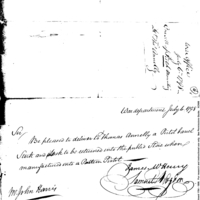 War Office
July 6. 1798
War department July 6. 1798
Sir
Be pleased to deliver to Thomas Annelly a Pistol barrel
Lock and to be returned into the public Store when
manufactured into a Pattern Pistol
James McHenry
Samuel Hodgdon
Mr John Harris